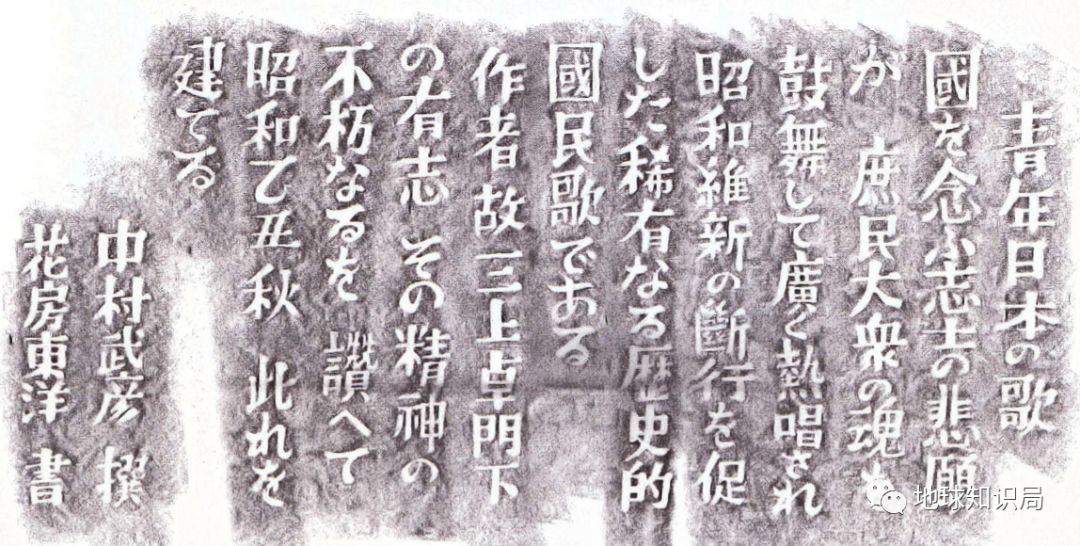 青年日本の歌
國を念ふ志士の悲願
が 庶民大衆の魂を
鼓舞して廣く熱唱され
昭和維新の斷行を促
した稀有なる歴史的
國民歌である
作者故三上卓門下
の有志 その精神の
不朽なるを 讃へて
昭和乙丑秋 此れを
建てる
中村武彦 撰
花房東洋 書
地球知识局